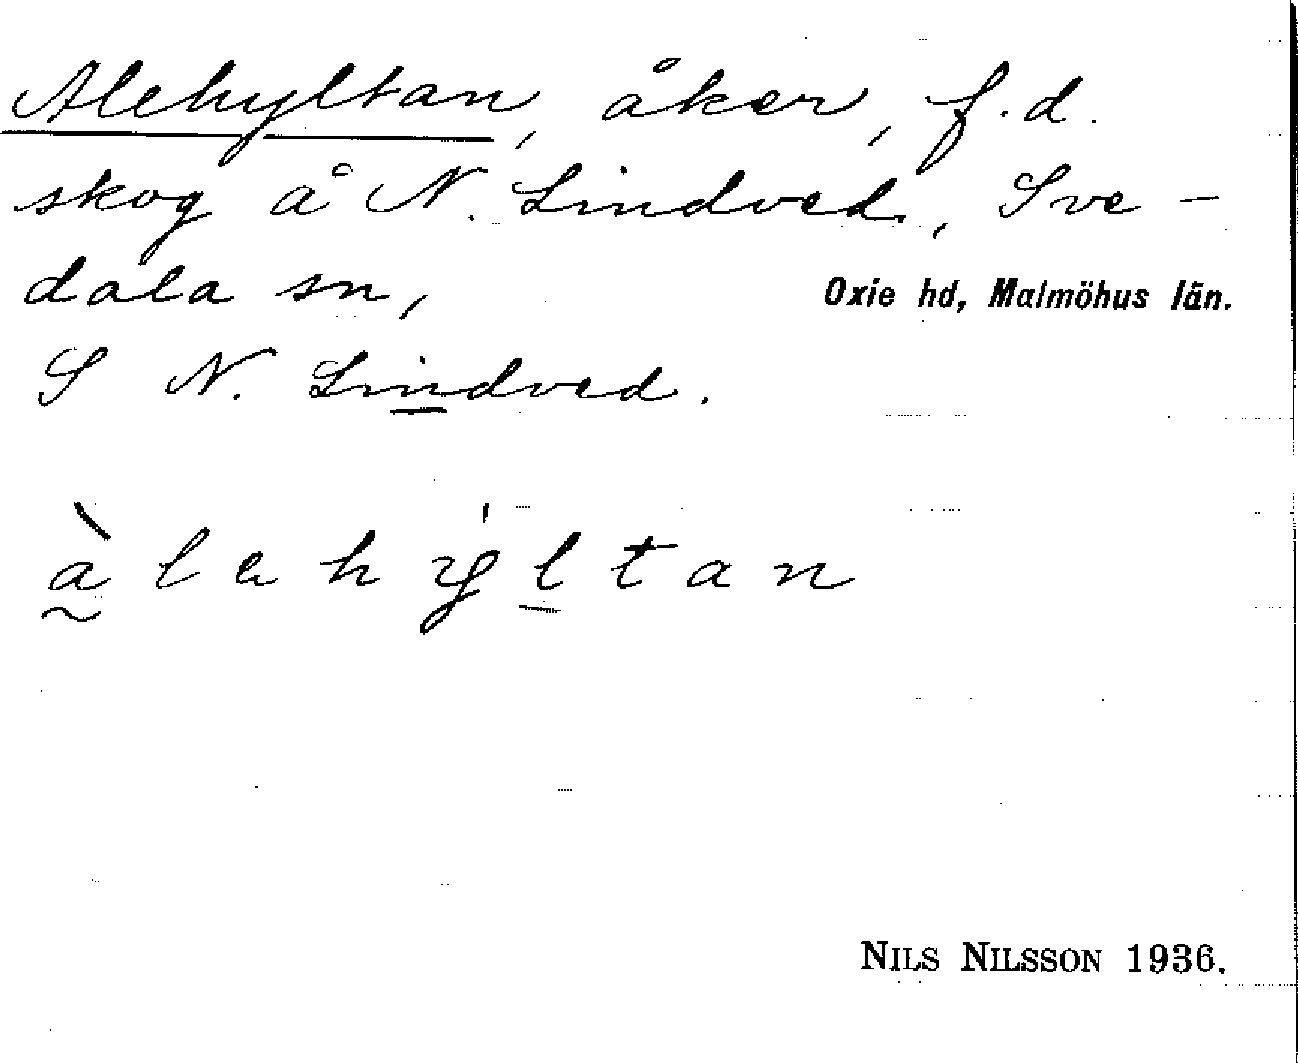 Alehyltan, åker, f.d.
skog å N. Lindved, Sve-
dala sn,
Oxie hd, Malmöhus län.
S N. Lindved.
àlahy̍ltan
NILS NILSSON 1936.